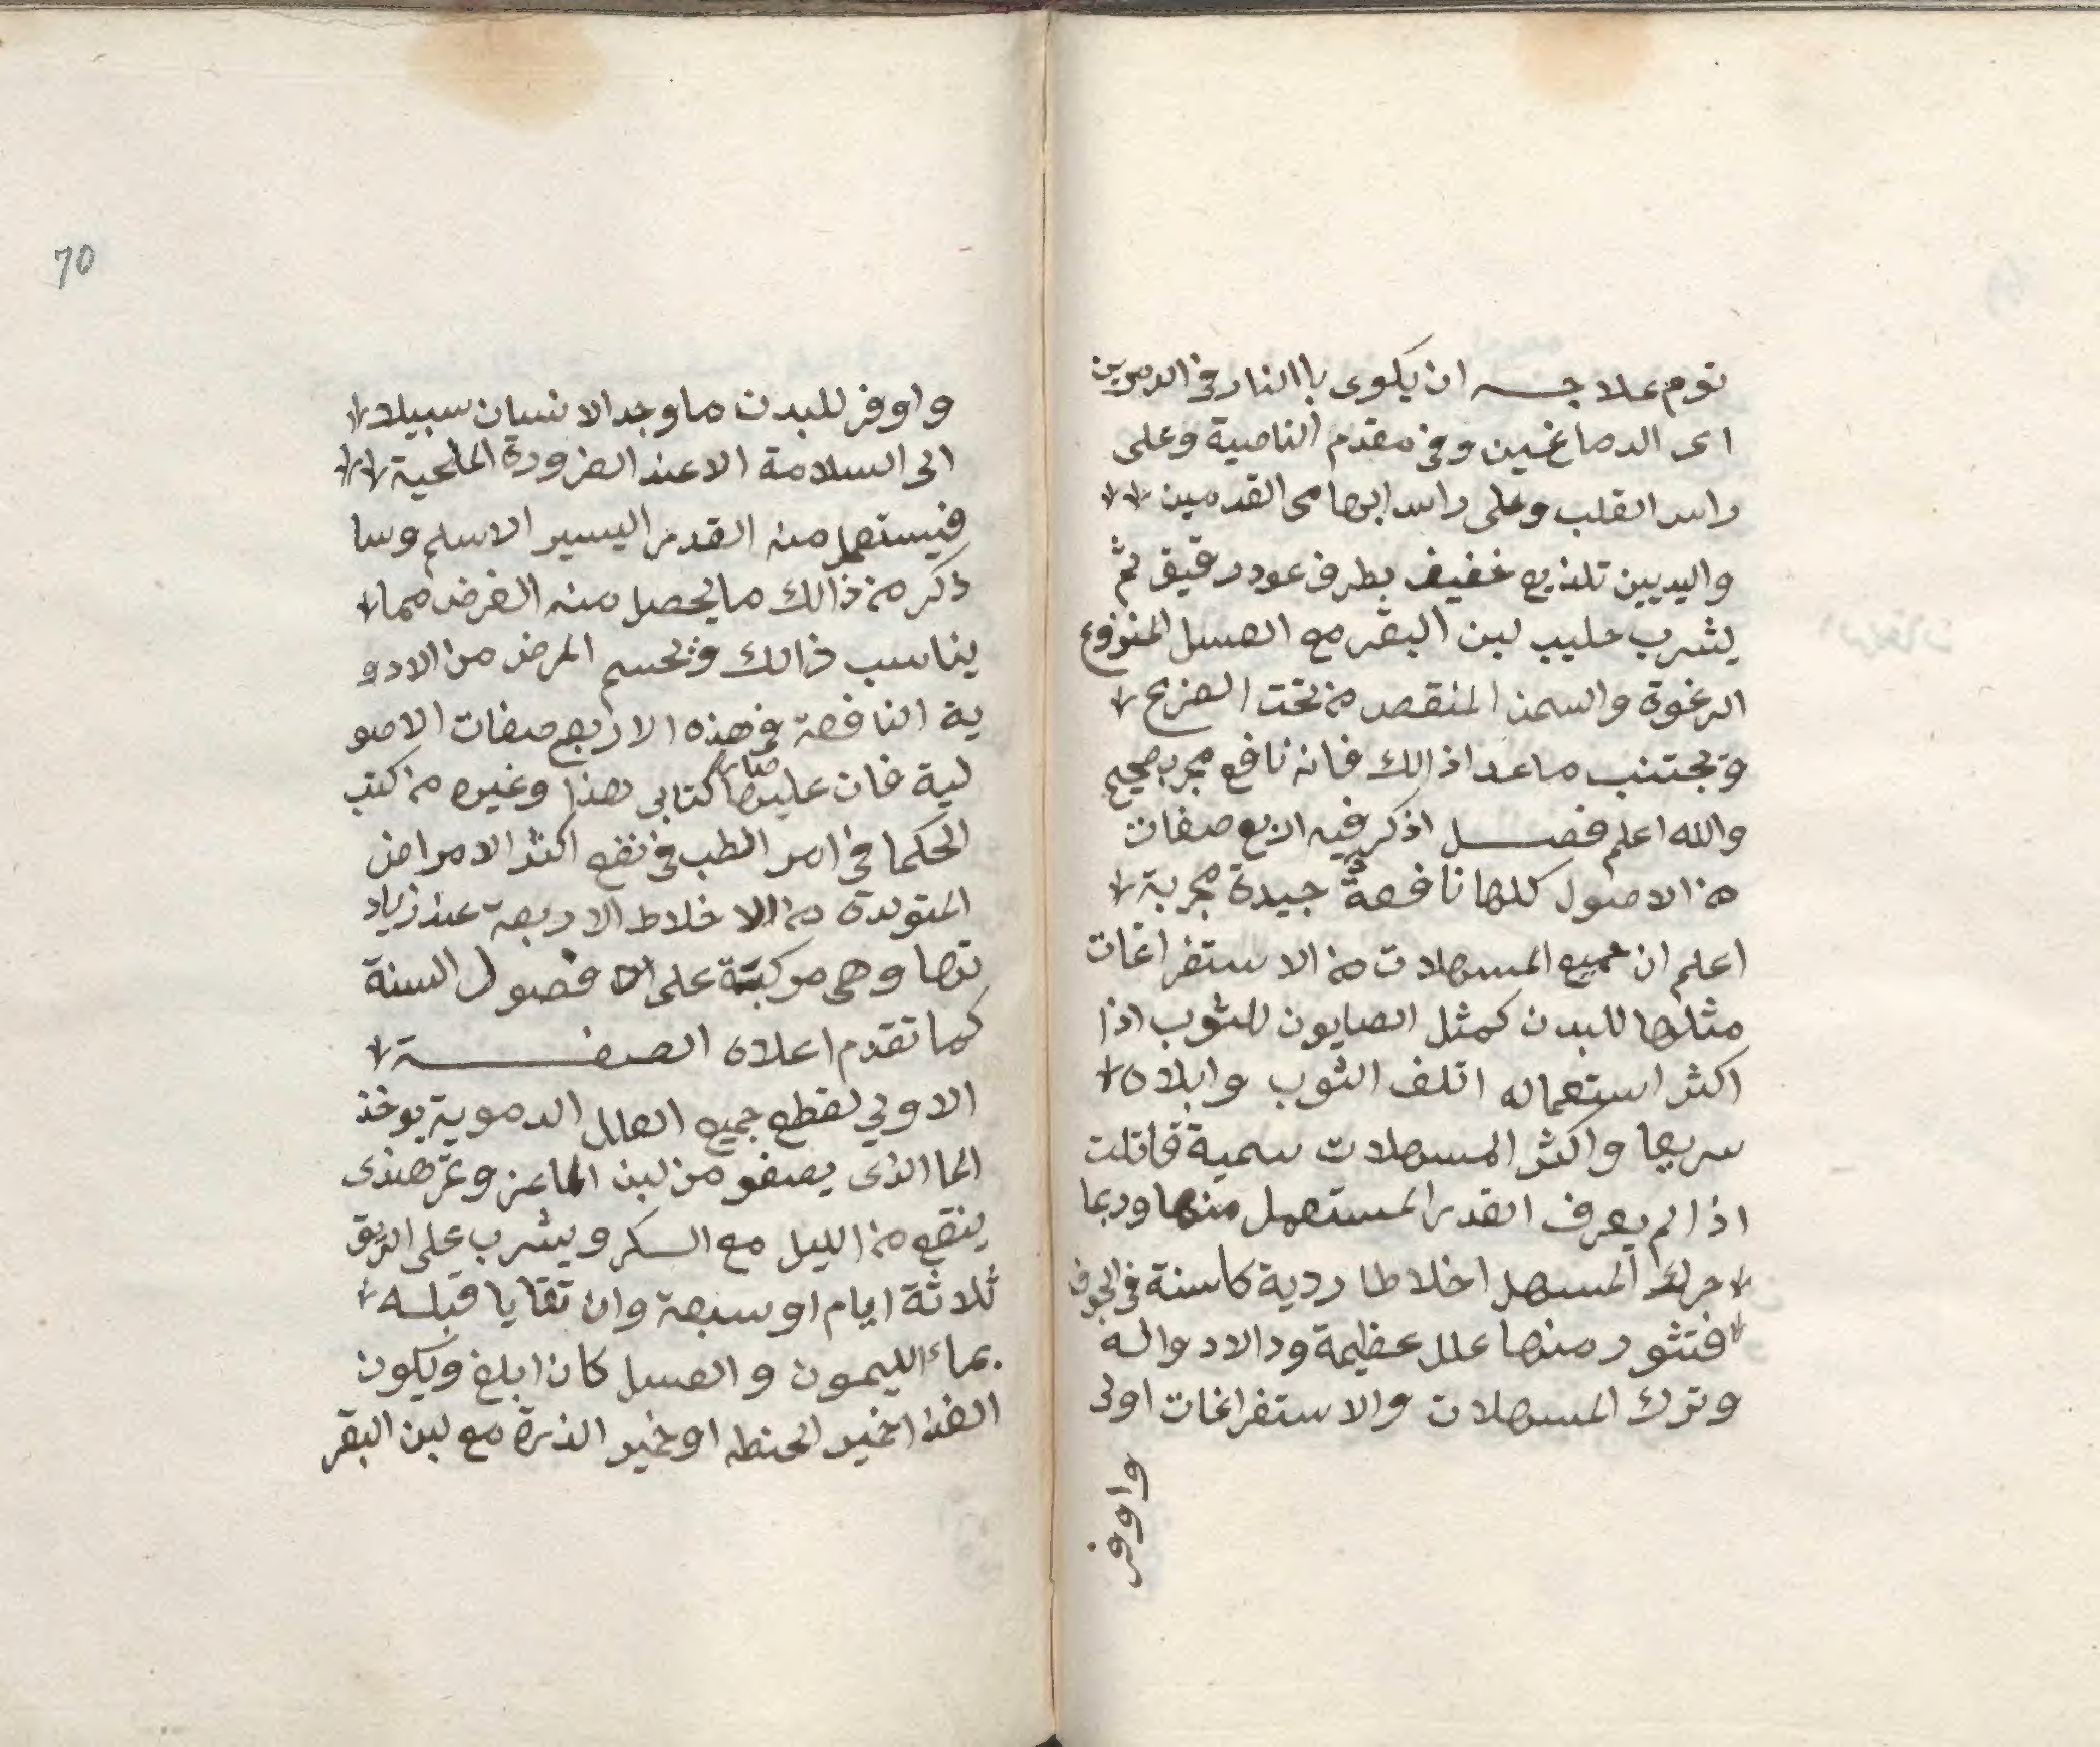 نوم علاجـــه ان يكوى باالنار في الدمرين
اى الدماغين وفي مقدم الناصية وعلى
راس القلب وعلى راس ابهامى القدمين
واليديين تلذيع خفيف بطرف عود رقيق ثم
يشرب حليب لبن البقر مع العسل المنزوع
الرغوة والسمن المنقص من تحت الضرع
وتجتنب ماعدا ذالك فانه نافع مجرب صحيح
والله اعلم فصـــل اذكر فيه اربع صفات
من الاصول كلها نافعة جيدة مجربة
اعلم ان جميع المسهلات من الاستفراغات
مثلها للبدن كمثل الصابون للثوب اذا
اكثر استعماله اتلف الثوب وابلاه
سريعا واكثر المسهلات سمية قاتلت
اذا لم يعرف القدر المستعمل منها وربما
حرك المسهل اخلاطا ردية كاسنة في الجوف
فتثور منها علل عظيمة ود الا دواله
وترك المسهلات والاستفراغات اولى
واوفر
70
واوفر للبدن ما وجد الانسان سبيلا
الى السلامة الا عند الضرورة الملحية
فيستعمل منه القدر اليسير الاسلم وسا
ذكر من ذالك ما يحصل منه الغرض مما
يناسب ذالك وتحسم المرض من الادو
ية النافعة في هذه الاربع صفات الاصو
لية فان عليها مدار كتابى هذا وغيره من كتب
الحكما في امر الطب في نفع اكثر الامراض
المتولدة من الاخلاط الاربعة عند زياد
تها وهى مركبة على فصول السنة
كما تقدم اعلاه الصفـــــة
الاولى لقطع جميع العلل الدموية يوخذ
الما الذى يصفو من لبن الماعز وتمر هندى
ينقع من الليل مع السكر ويشرب على الريق
ثلاثة ايام او سبعة وان تقايا قبله
بماء الليمون والعسل كان ابلغ ويكون
الغذا خمير الحنطه او خمير الذرة مع لبن البقر